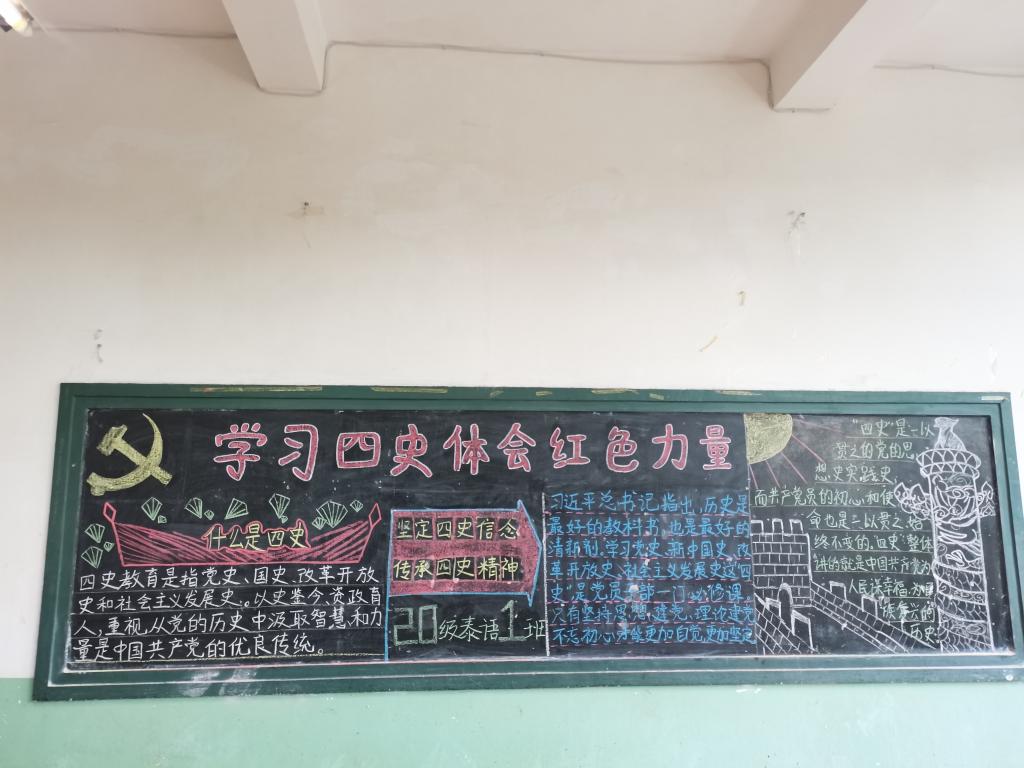 学习四史体会红色力量
什么是四史
四史教育是指党史、国史、改革开放
史和社会主义发展史。以史鉴今,资政育
人,重视从党的历史中汲取智慧和力
量是中国共产党的优良传统。
坚定四史信念
传承四史精神
20级泰语1班
习近平总书记指出,历史是
最好的教科书,也是最好的
清新剂,学习党史、新中国史、改
革开放史、社会主义发展史这"四
史"是党员干部一门必修课,
只有坚持思想建党、理论建党
不忘初心才能更加自觉,更加坚定
"四史"是一以
贯之的党的思
想史实践史,
而共产党员的初心和使
命也是一以贯之、始
终不变的,"四史"整体
讲的就是中国共产党为
人民谋幸福,为民
族复兴的
历史